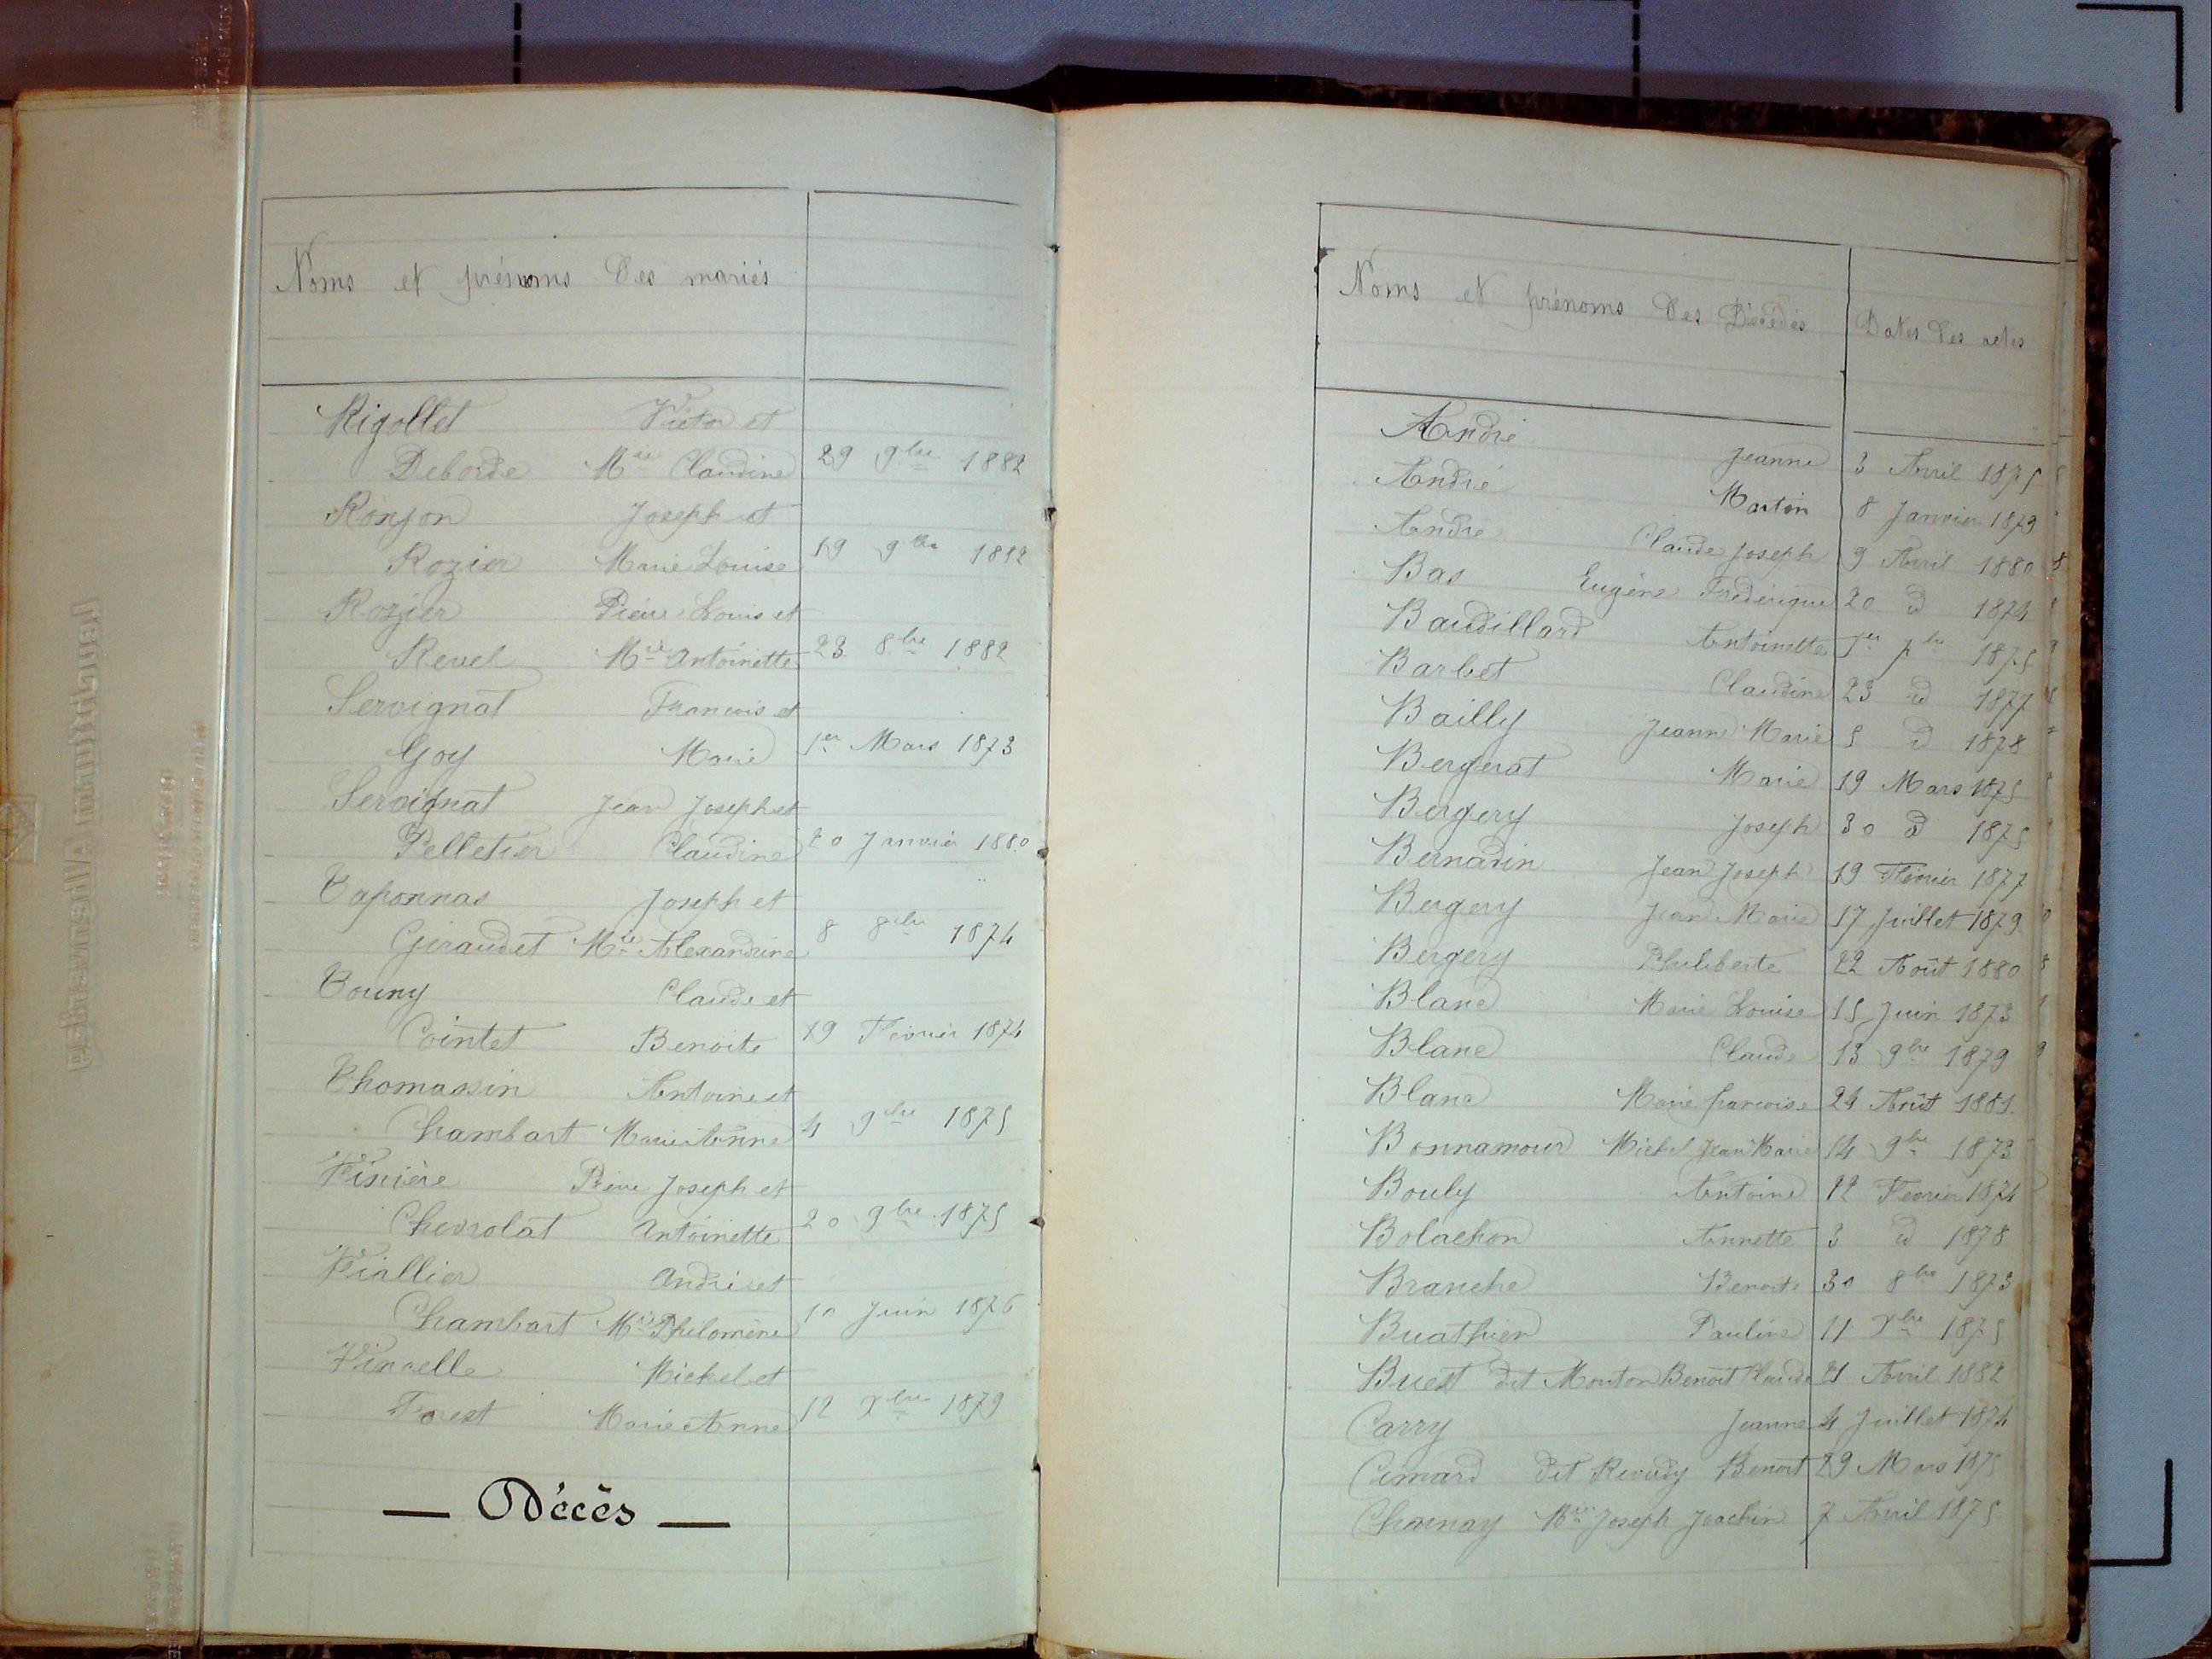 Noms et prénoms des mariés
Rigollet Victor et
Deborde Mie Claudine 29 9bre 1882
Ronjon Joseph et
Rozier Marie Louise 19 9bre 1882
Rozier Pierre Louis et
Revel Mie Antoinette 23 8bre 1882
Servignat Francois et
Goy Marie 1er Mars 1873
Servignat Jean Joseph et
Pelletier Claudine 20 Janvier 1880
Taponnas Joseph et
Giraudet Mie Alexandrine 8 8bre 1874
Touny Claude et
Cointet Benoite 19 Février 1874
Thomassin Antoine et
Chambart Marie Anne 4 9bre 1875
Pierre Joseph et
Chevrolat Antoinette 20 9bre 1875
Viallier André et
Chambart Mie Philomène 10 Juin 1876
Michel et
Forest Marie Anne 12 Xbre 1879
— Décès —
Noms et prénoms des Décédés Dates des actes
André Jeanne 3 Avril 1875
André Martin 8 Janvier 1879
André Claude Joseph 9 Avril 1880
Bas Eugène Frédérique 20 d 1874
Baudillard Antoinette 1er 7bre 1875
Barbet Claudine 23 d 1877
Bailly Jeanne Marie 5 d 1878
Bergerat Marie 19 Mars 1875
Bergery Joseph 30 d 1875
Bernardin Jean Joseph 19 Février 1877
Bergery Jean Marie 17 Juillet 1879
Bergery Philiberte 22 Août 1880
Blanc Marie Louise 15 Juin 1873
Blanc Claude 13 9bre 1879
Blanc Marie françoise 24 Août 1881
Bonnamour Michel Jean Marie 14 9bre 1873
Bouly Antoine 22 Février 1874
Bolachon Annette 3 d 1878
Branche Benoite 30 8bre 1873
Buathier Pauline 11 Xbre 1875
Buest dit Mouton Benoit Claude 21 Avril 1882
Carry Jeanne 4 Juillet 1874
Cimard dit Benoit 29 Mars 1875
Charnay Mie Joseph Joachin 7 Avril 1875